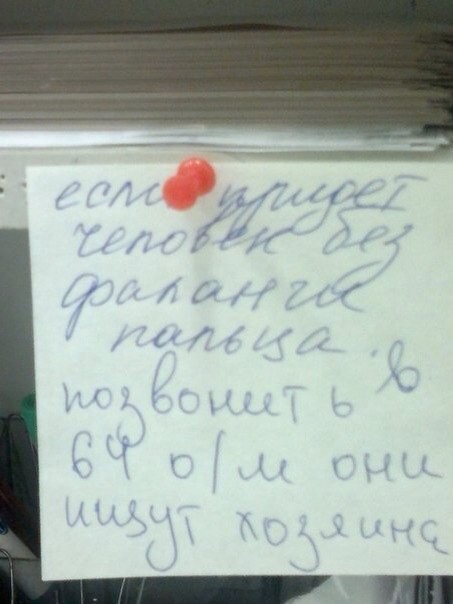 если придет
человек без
фаланги
пальца. в
позвонить
64 о/м они
ищут хозяина